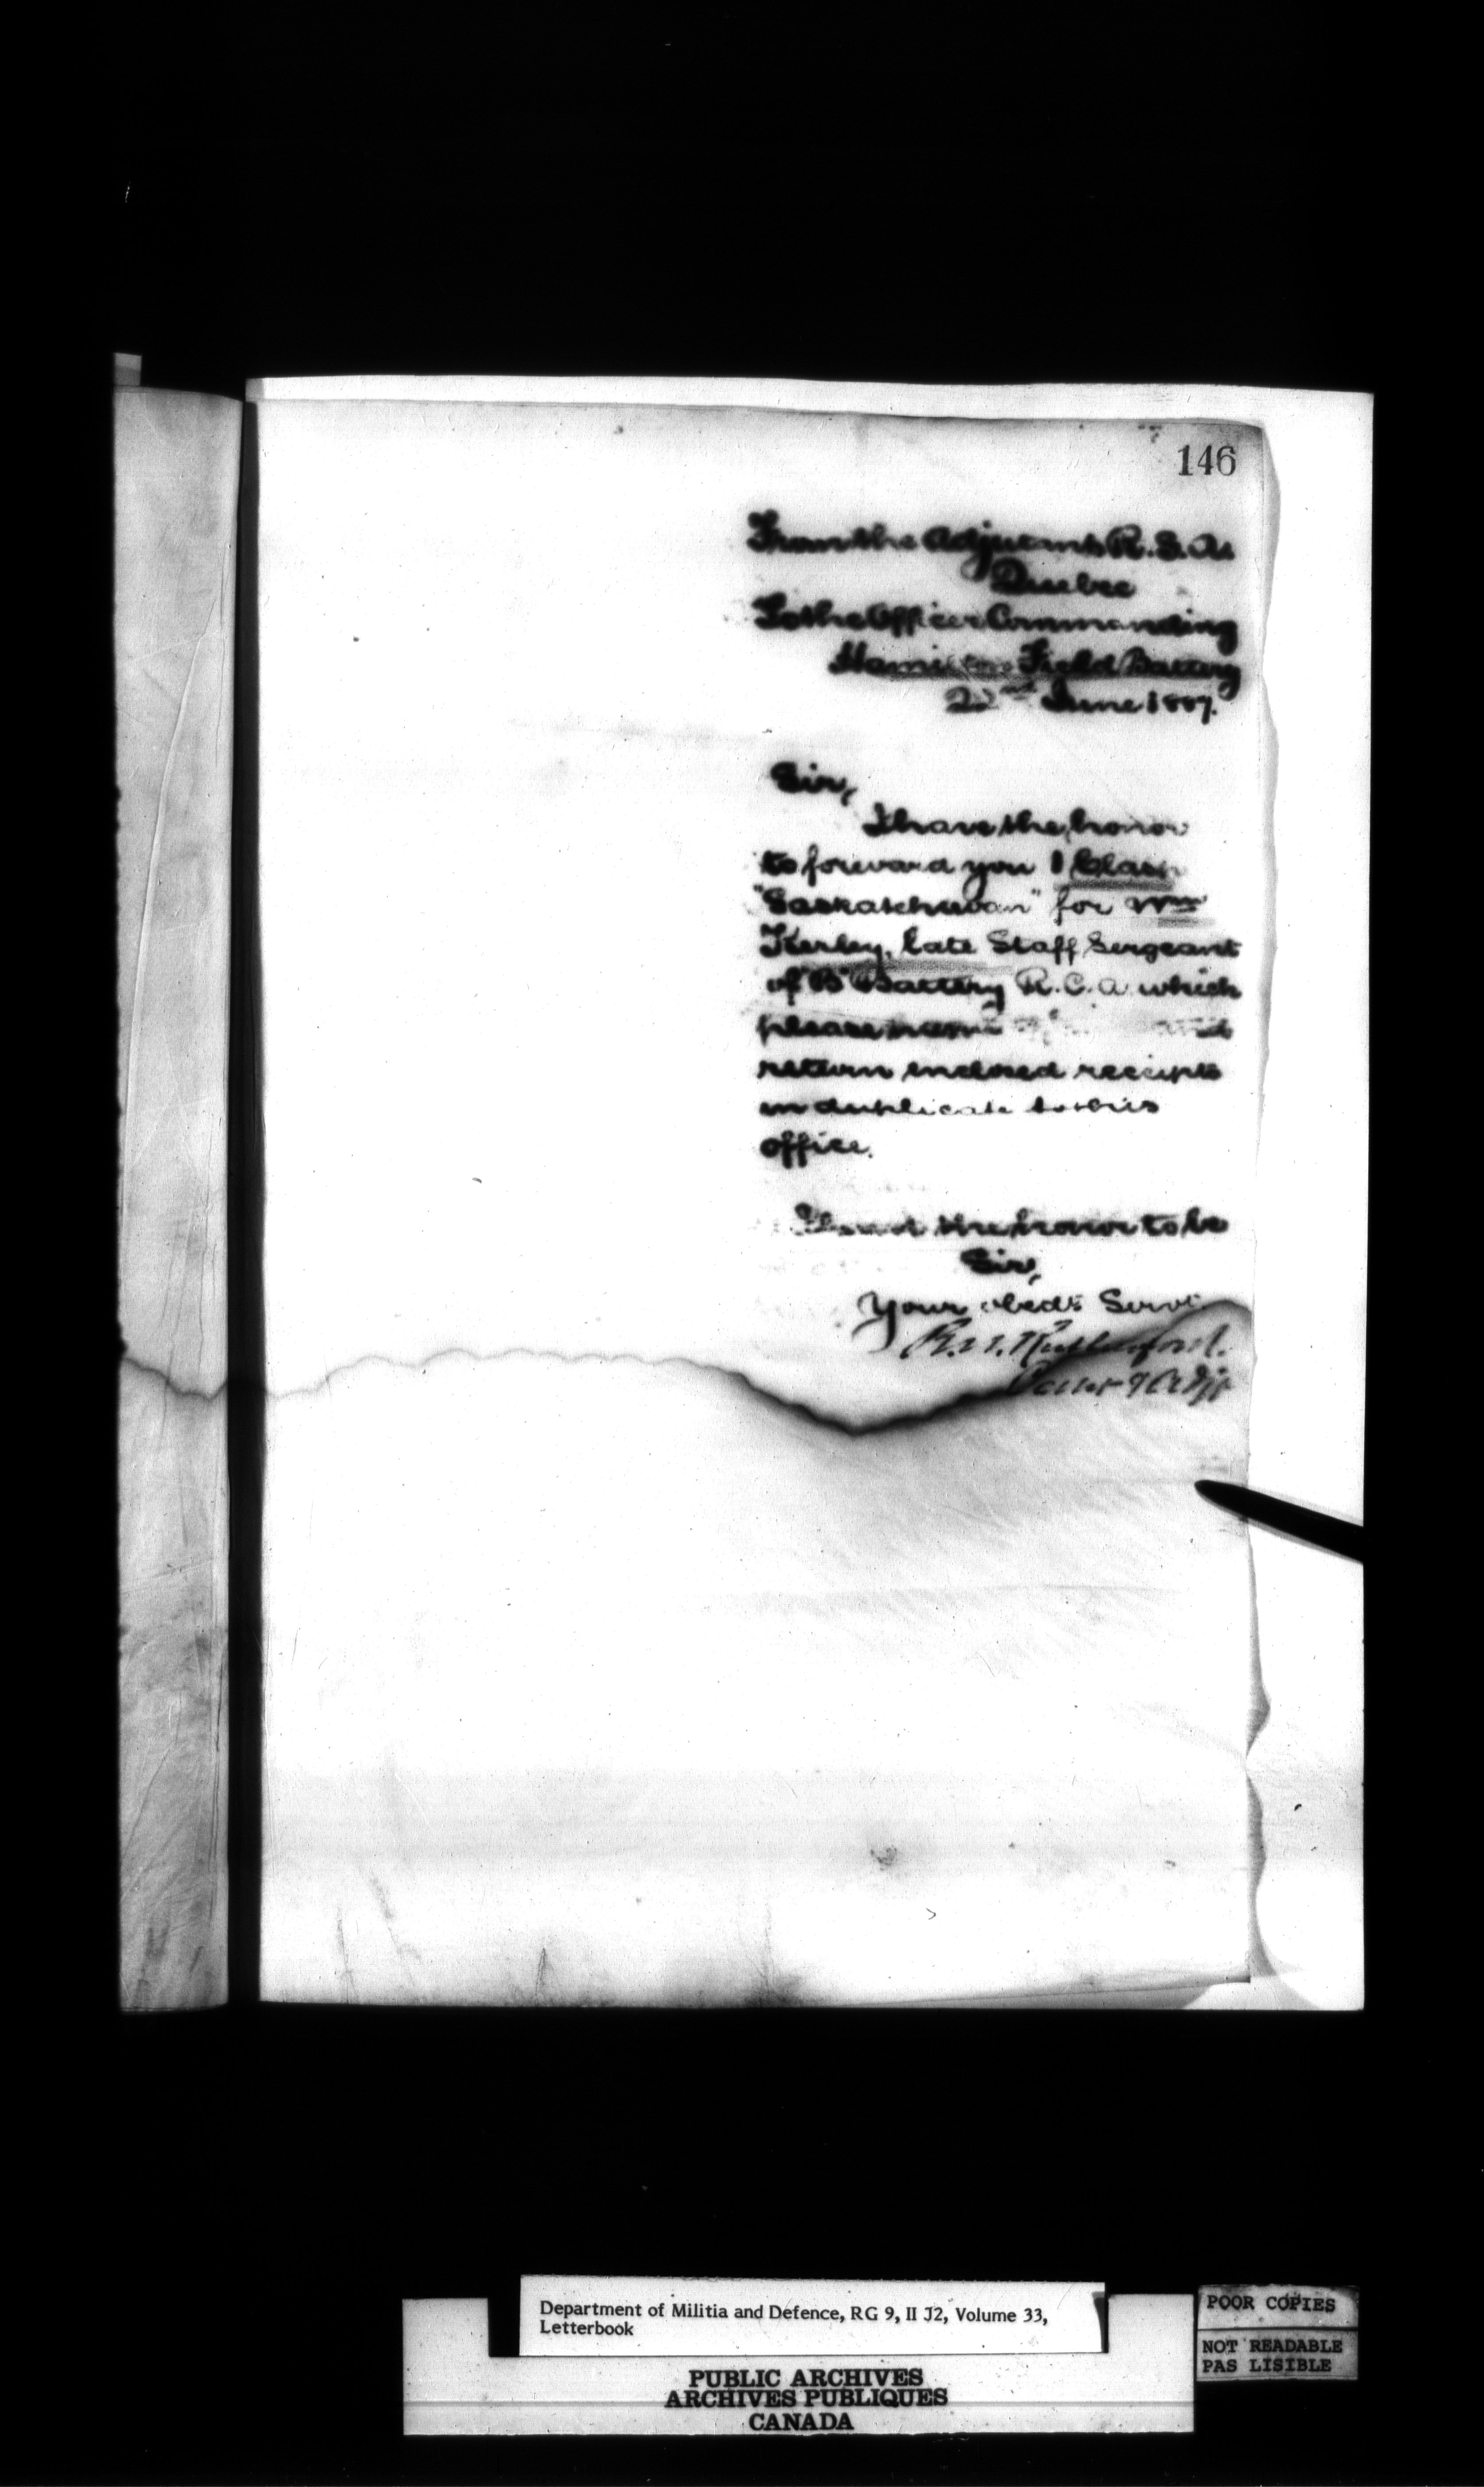 146
From the Adjutant R.S.A.
Quebec
To the Officer Commanding
Hamilton Field Battery
22nd June 1887.
Sir,
I have the honor
to forward you 1 Clasp
"Saskatchewan" for Wm
Kerley, late Staff Sergeant
of "B" Battery R.C.A. which
please
return enclosed receipts
in duplicate to this
office.
I have the honor to be
Sir,
Your obedt Servt
Rutherford.
Adjt
Department of Militia and Defence, RG 9, II J2, Volume 33,
Letterbook
POOR COPIES
NOT READABLE
PAS LISIBLE
PUBLIC ARCHIVES
ARCHIVES PUBLIQUES
CANADA